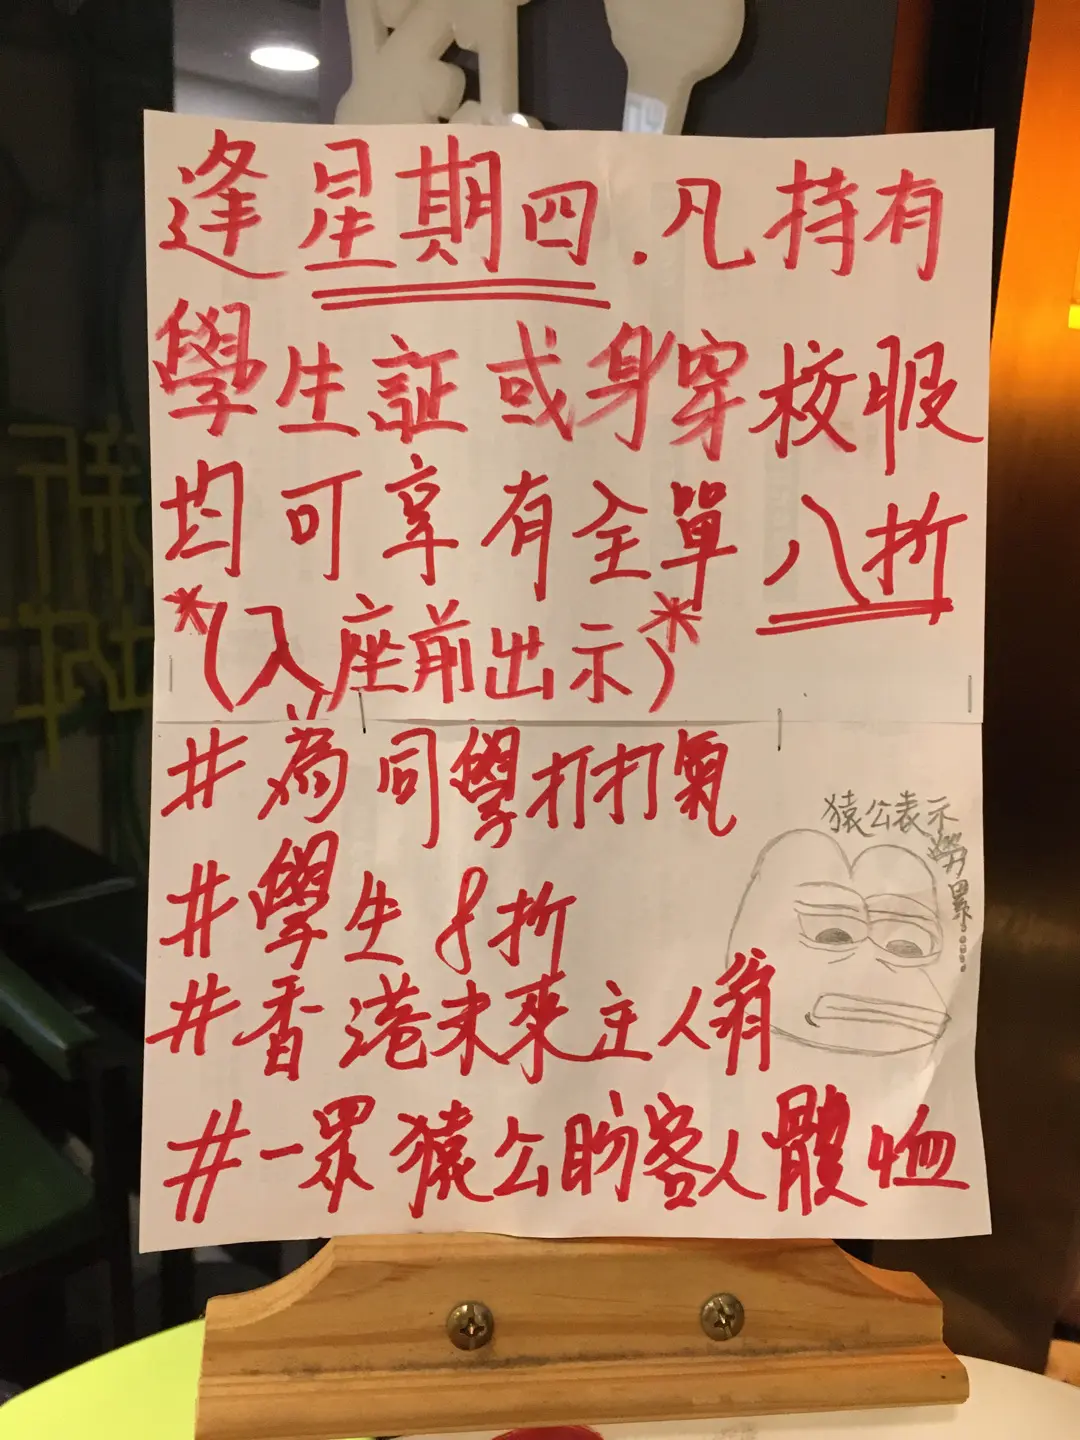 逢星期四.凡持有
學生証或身穿校服
均可享有全單八折
*(入座前出示)*
#為同學打打氣
#學生8折
#香港未來主人翁
#一眾猿公盼客人體恤
猿公表示
勞累……